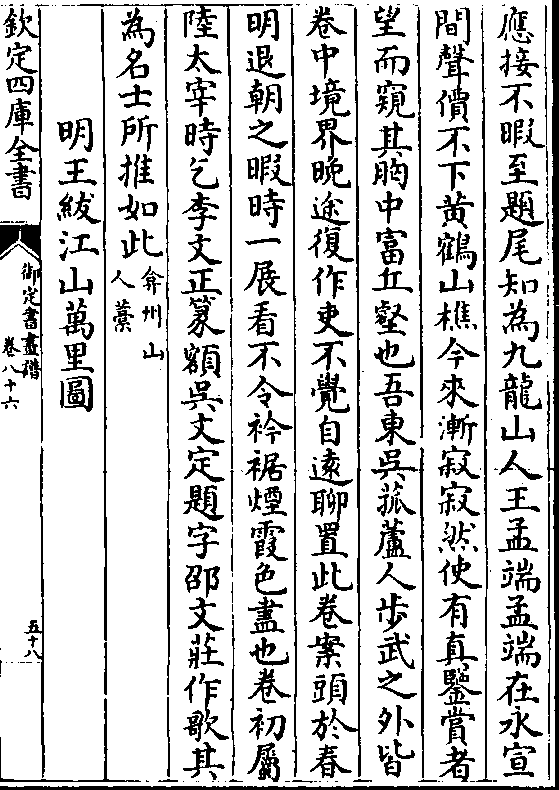 應接不暇至題尾知為九龍山人王孟端孟端在永宣
間聲價不下黃鶴山樵今來漸寂寂然使有真鑒賞者
望而窺其胸中富丘壑也吾東吳菰蘆人步武之外皆
卷中境界晚途復作吏不覺自遠聊置此卷案頭於春
明退朝之暇時一展看不令衿裾煙霞色盡也卷初屬
陸太宰時乞李文正篆額吳文定題字邵文莊作歌其
為名士所推如此弇州山人藁
明王紱江山萬里圖
欽定四庫全書
御定書畫譜
卷八十六
五十八